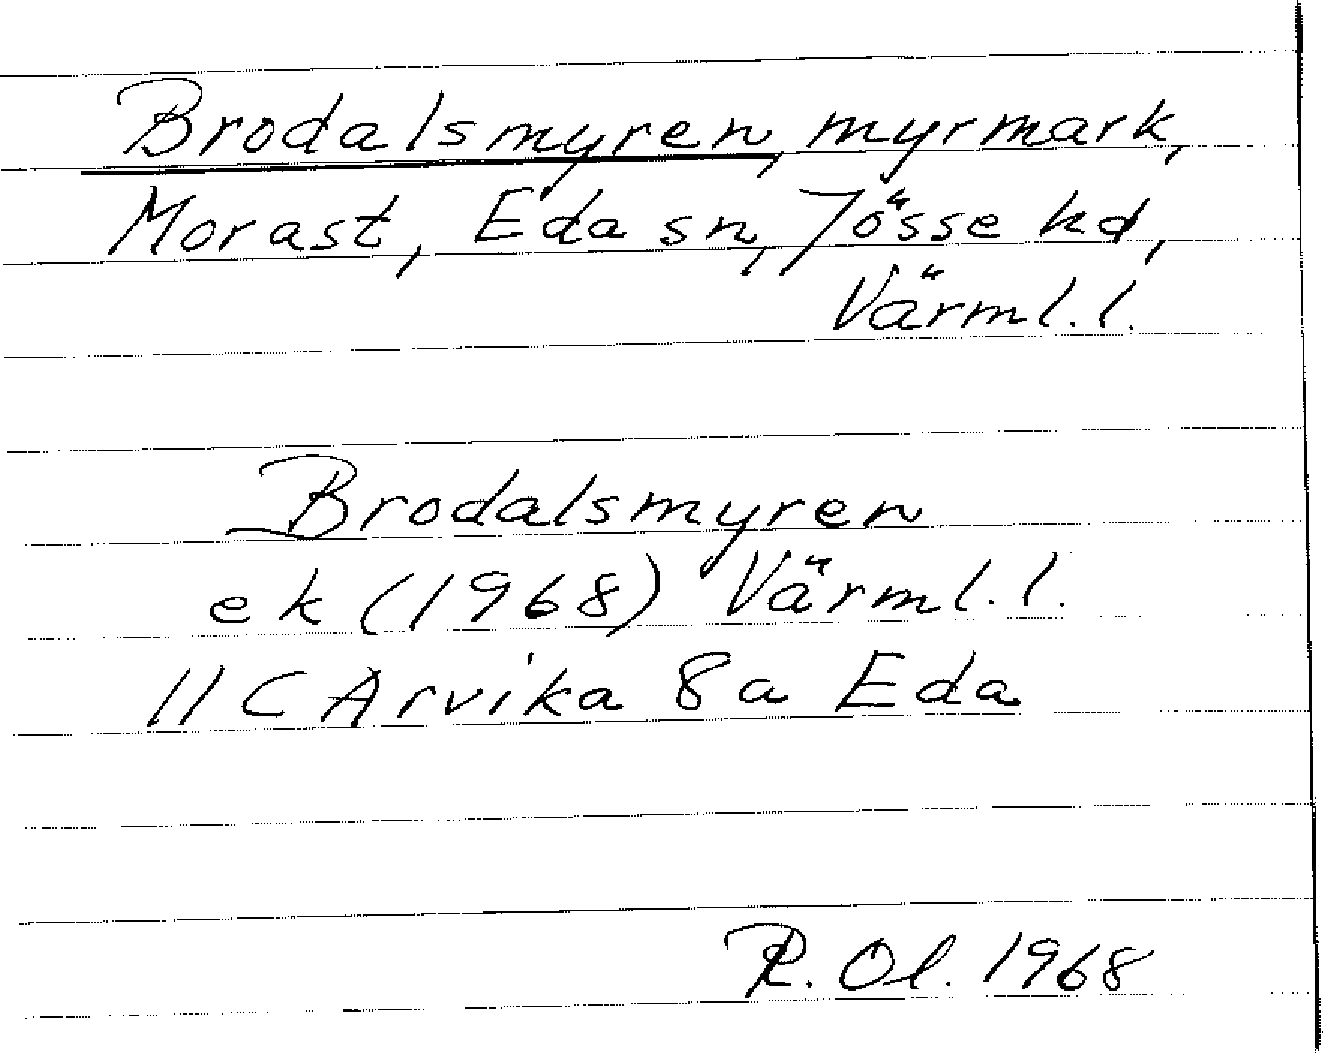 Brodalsmyren, myrmark,
Morast, Eda sn, Jösse hd,
Värml. l.
Brodalsmyren
ek (1968) Värml. l.
11 C Arvika 8a Eda
R. Ol. 1968